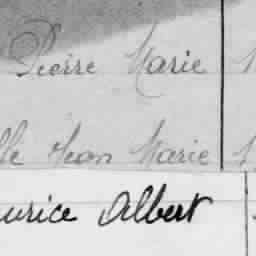 Pierre Marie
lle Jean Marie
urice Albert